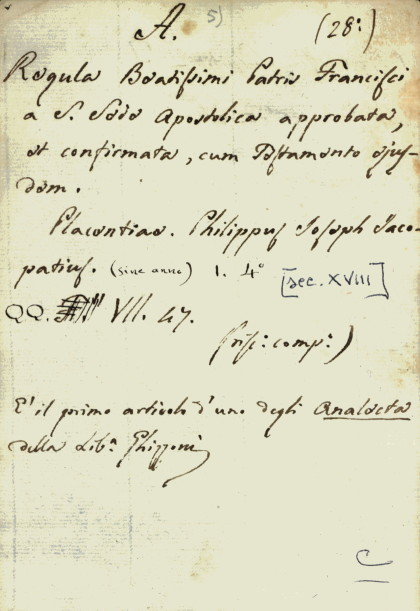 A. 5) (28:)
Regula Beatissimi Patris Francisci
a S. Sede Apostolica approbata,
et confirmata, cum Testamento ejus-
dem.
Placentiae. Philippus Joseph Jaco-
patius. (sine anno) 1. 4° [sec. XVIII]
QQ. VII. 47.
(risc: comp:)
E' il primo articolo d'uno degli Analecta
della Libª Ghizzoni
C